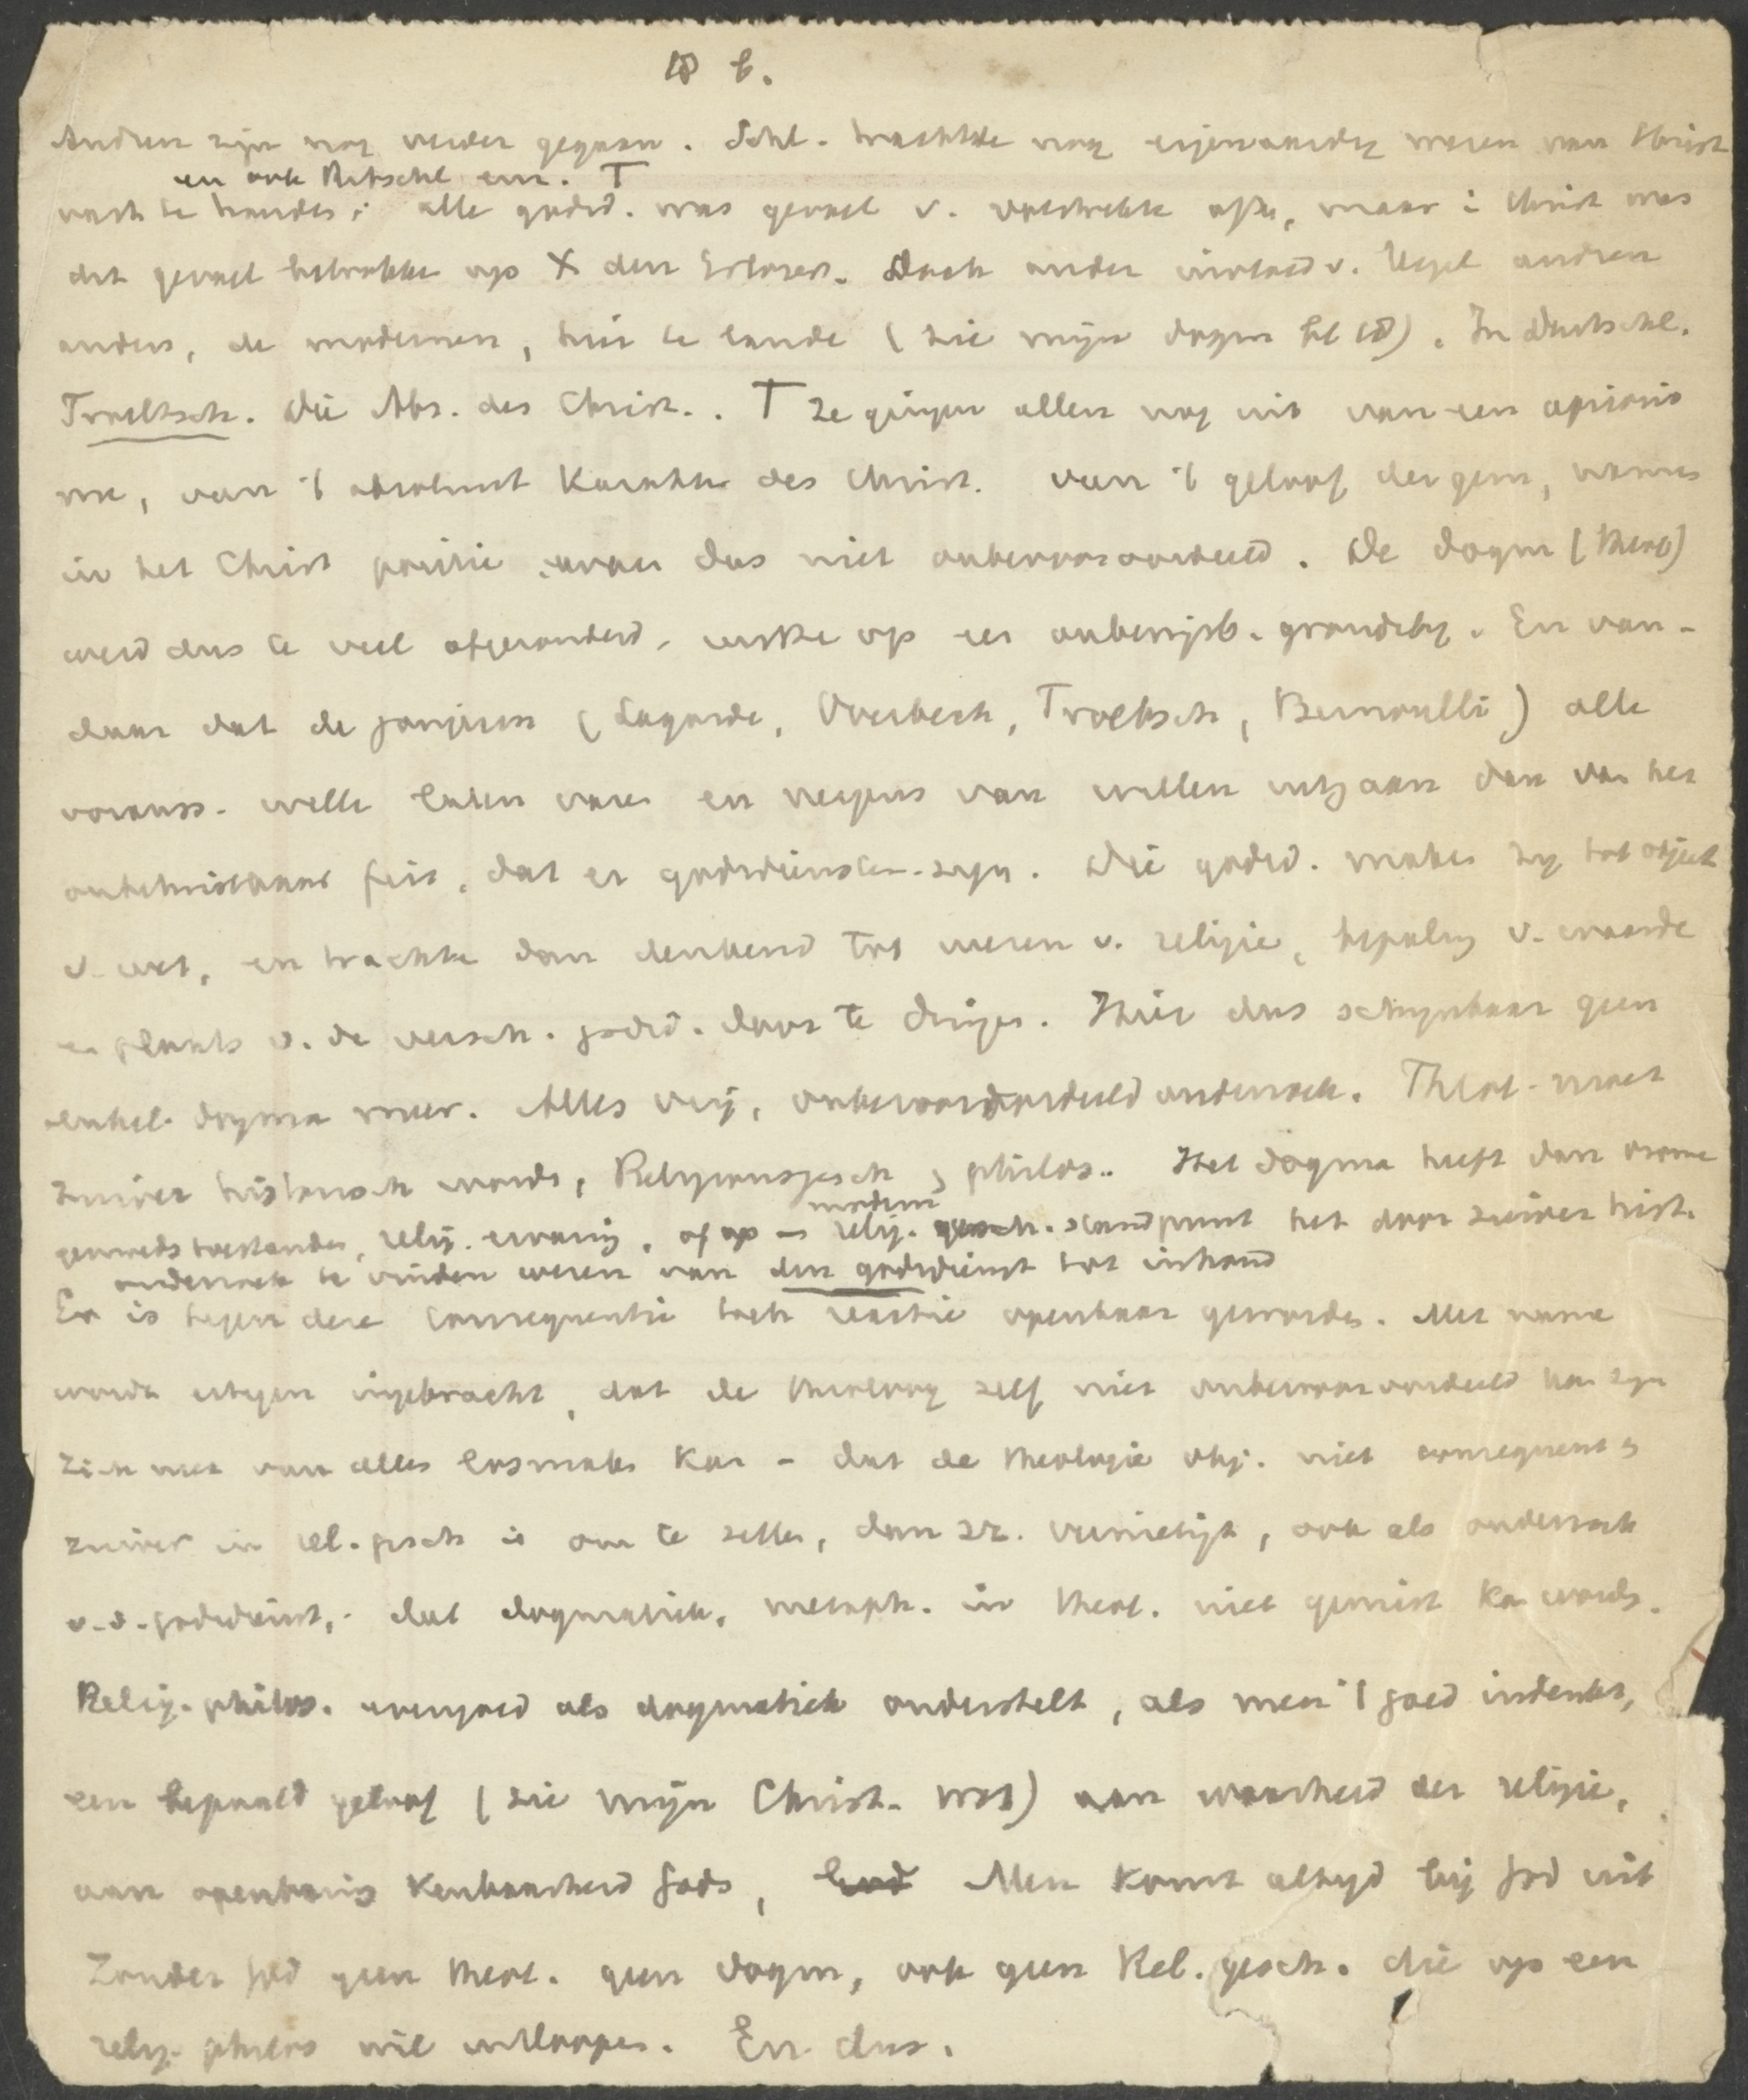 18 b.
Andren zijn nog verder gegaan. Schl. trachtte nog eigenaardig wezen van Christ
en ook Ritschl enz. T
vast te houden; alle godsd. was gevoel v. volstrekte afh., maar i Christ was
dit gevoel betrokken op X den Erlöser. Doch onder invloed v. Hegel andren
anders, de modernen, hier te lande (zie mijn dogm bl 18). In Duitschl.
Troeltsch. Die Abs. des Christ.. T ze gingen allen nog uit van een aprioris
me, van 't absoluut karakter des Christ. van 't geloof der gem, namen
in het Christ positie waren dus niet onbevooroordeeld. De dogm (theol)
werd dus te veel afgezonderd, rustte op een onbewijsb. grondstelg. En van-
daar dat de jongeren (Lagarde, Overbeck, Troeltsch, Bernoulli) alle
vorauss. willen laten varen en nergens van willen uitgaan dan van het
onbetwistbaar feit, dat er godsdiensten zijn. Die godsd. maken zij tot object
v. wet, en trachten dan denkend tot wezen v. religie, bepaling v. waarde
en plaats v. de versch. godsd. door te dringen. Hier dus schijnbaar geen
enkel dogma meer. Alles vrij, onbevooroordeeld onderzoek. Theol. moet
zuiver historisch worden, Religionsgesch, philos.. Het dogma heeft dan vrome
gemoedstoestanden, relig. ervaring, of op modern relig. gesch. standpunt het door zuiver hist.
onderzoek te vinden wezen van den godsdienst tot inhoud
Er is tegen deze consequentie toch reactie openbaar geworden. Met name
wordt ertegen ingebracht, dat de theoloog zelf niet onbevooroordeeld kan zijn
zich niet van alles losmaken kan - dat de theologie obj. niet consequent en
zuiver in rel. gesch is om te zetten, dan zz. vernietigt, ook als onderzoek
v. d. godsdienst, - dat dogmatiek, metaph. in theol. niet gemist kan worden.
Relig. philos. evengoed als dogmatiek onderstelt, als men 't goed indenkt,
een bepaald geloof (zie mijn Christ. wet) aan waarheid der religie,
aan openbaring kenbaarheid Gods, Men komt altijd bij God uit
Zonder God geen theol. geen dogm, ook geen Rel. gesch. die op een
relig. philos wil uitloopen. En dus.